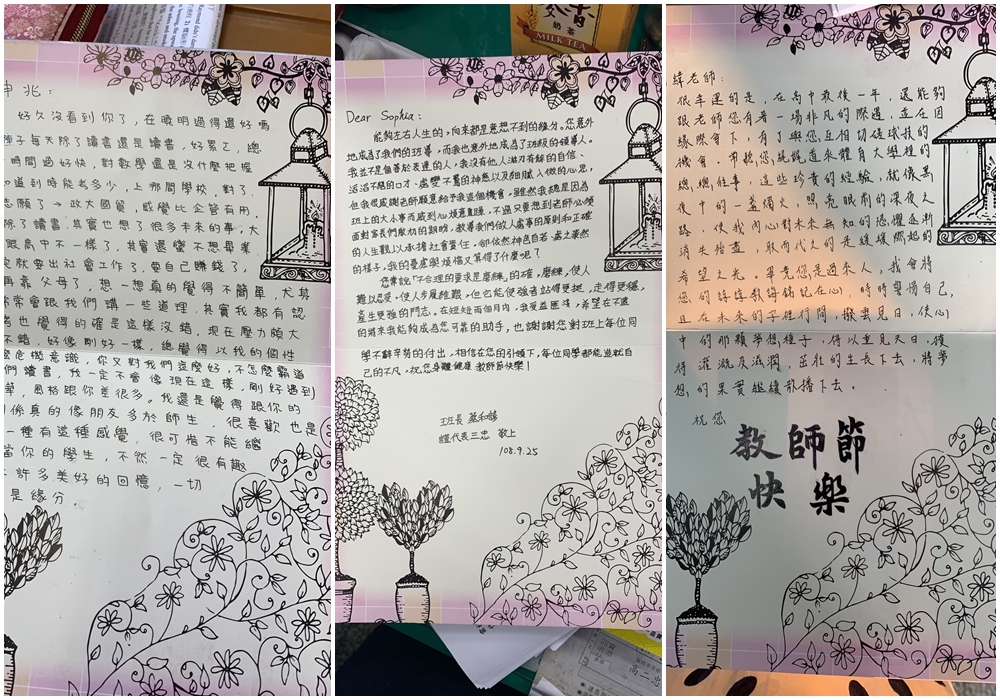 申兆：
好久沒看到你了，在曉明過得還好嗎
子每天除了讀書還是讀書，好累ㄛ，總
時間過好快，對數學還是沒什麼把握
知道到時能考多少，上那間學校，對了，
志願了→政大國貿，感覺比企管有用，
除了讀書，其實也想了很多未來的事，大
跟高中不一樣了，其實還蠻不想畢業
就要出社會工作了，要自己賺錢了，
再靠父母了，想一想真的覺得不簡單，尤其
常會跟我們講一些道理，其實我都有認
也覺得的確是這樣沒錯，現在壓力頗大
不錯，好像剛好一樣，總覺得以我的個性
危機意識，你又對我們這麼好，不怎麼霸道
們讀書，我一定不會像現在這樣，剛好遇到
，風格跟你差很多。我還是覺得跟你的
係真的像朋友多於師生，很喜歡也是
一種有這種感覺，很可惜不能繼
當你的學生，不然一定很有趣
許多美好的回憶，一切
是緣分。
奶茶
MILK TEA
Dear Sophia：
能夠左右人生的，向來都是意想不到的緣分。您意外
地成為了我們的班導，而我也意外地成為了班級的領導人。
我並不是個善於表達的人，我沒有他人游刃有餘的自信、
滔滔不絕的口才、處變不驚的神態以及細膩入微的心思，
但我很感謝老師願意給予我這個機會。雖然我總是因為
班上的大小事而感到心煩意亂，不過只要想到老師必須
面對家長們殷切的期盼，教導我們做人處事的原則和正確
的人生觀以承擔社會責任，卻依然神色自若、處之泰然
的樣子，我的憂慮與煩惱又算得了什麼呢？
您常說「不合理的要求是磨練」的確，磨練，使人
難以忍受，使人步履維艱，但它能使強者站得更挺，走得更穩，
產生更強的鬥志。在短短兩個月內，我受益匪淺，希望在不遠
的將來我能夠成為您可靠的助手，也謝謝您對班上每位同
學不辭辛勞的付出，相信在您的引領下，每位同學都能造就自
己的不凡。祝您身體健康 教師節快樂！
班長
謹代表三忠 敬上
108.9.25
緯老師：
很幸運的是，在高中最後一年，還能夠
跟老師您有著一場非凡的際遇，並在因
緣際會下，有了與您互相切磋球技的
機會。市聽您娓娓道來體育大學裡的
總總往事，這些珍貴的經驗，就像黑
夜中的一盞燭火，照亮眼前的深夜之
路，使我內心對未來無知的恐懼逐漸
消失殆盡，取而代之的是緩緩燃起的
希望之光。畢竟您是過來人，我會將
您的諄諄教誨銘記在心，時時警惕自己，
且在未來的字裡行間，撥雲見日，使心
中的那顆夢想種子，得以重見天日，獲
得灌溉及滋潤，茁壯的生長下去，將夢
想的果實繼續散播下去。
祝您
教師節
快樂